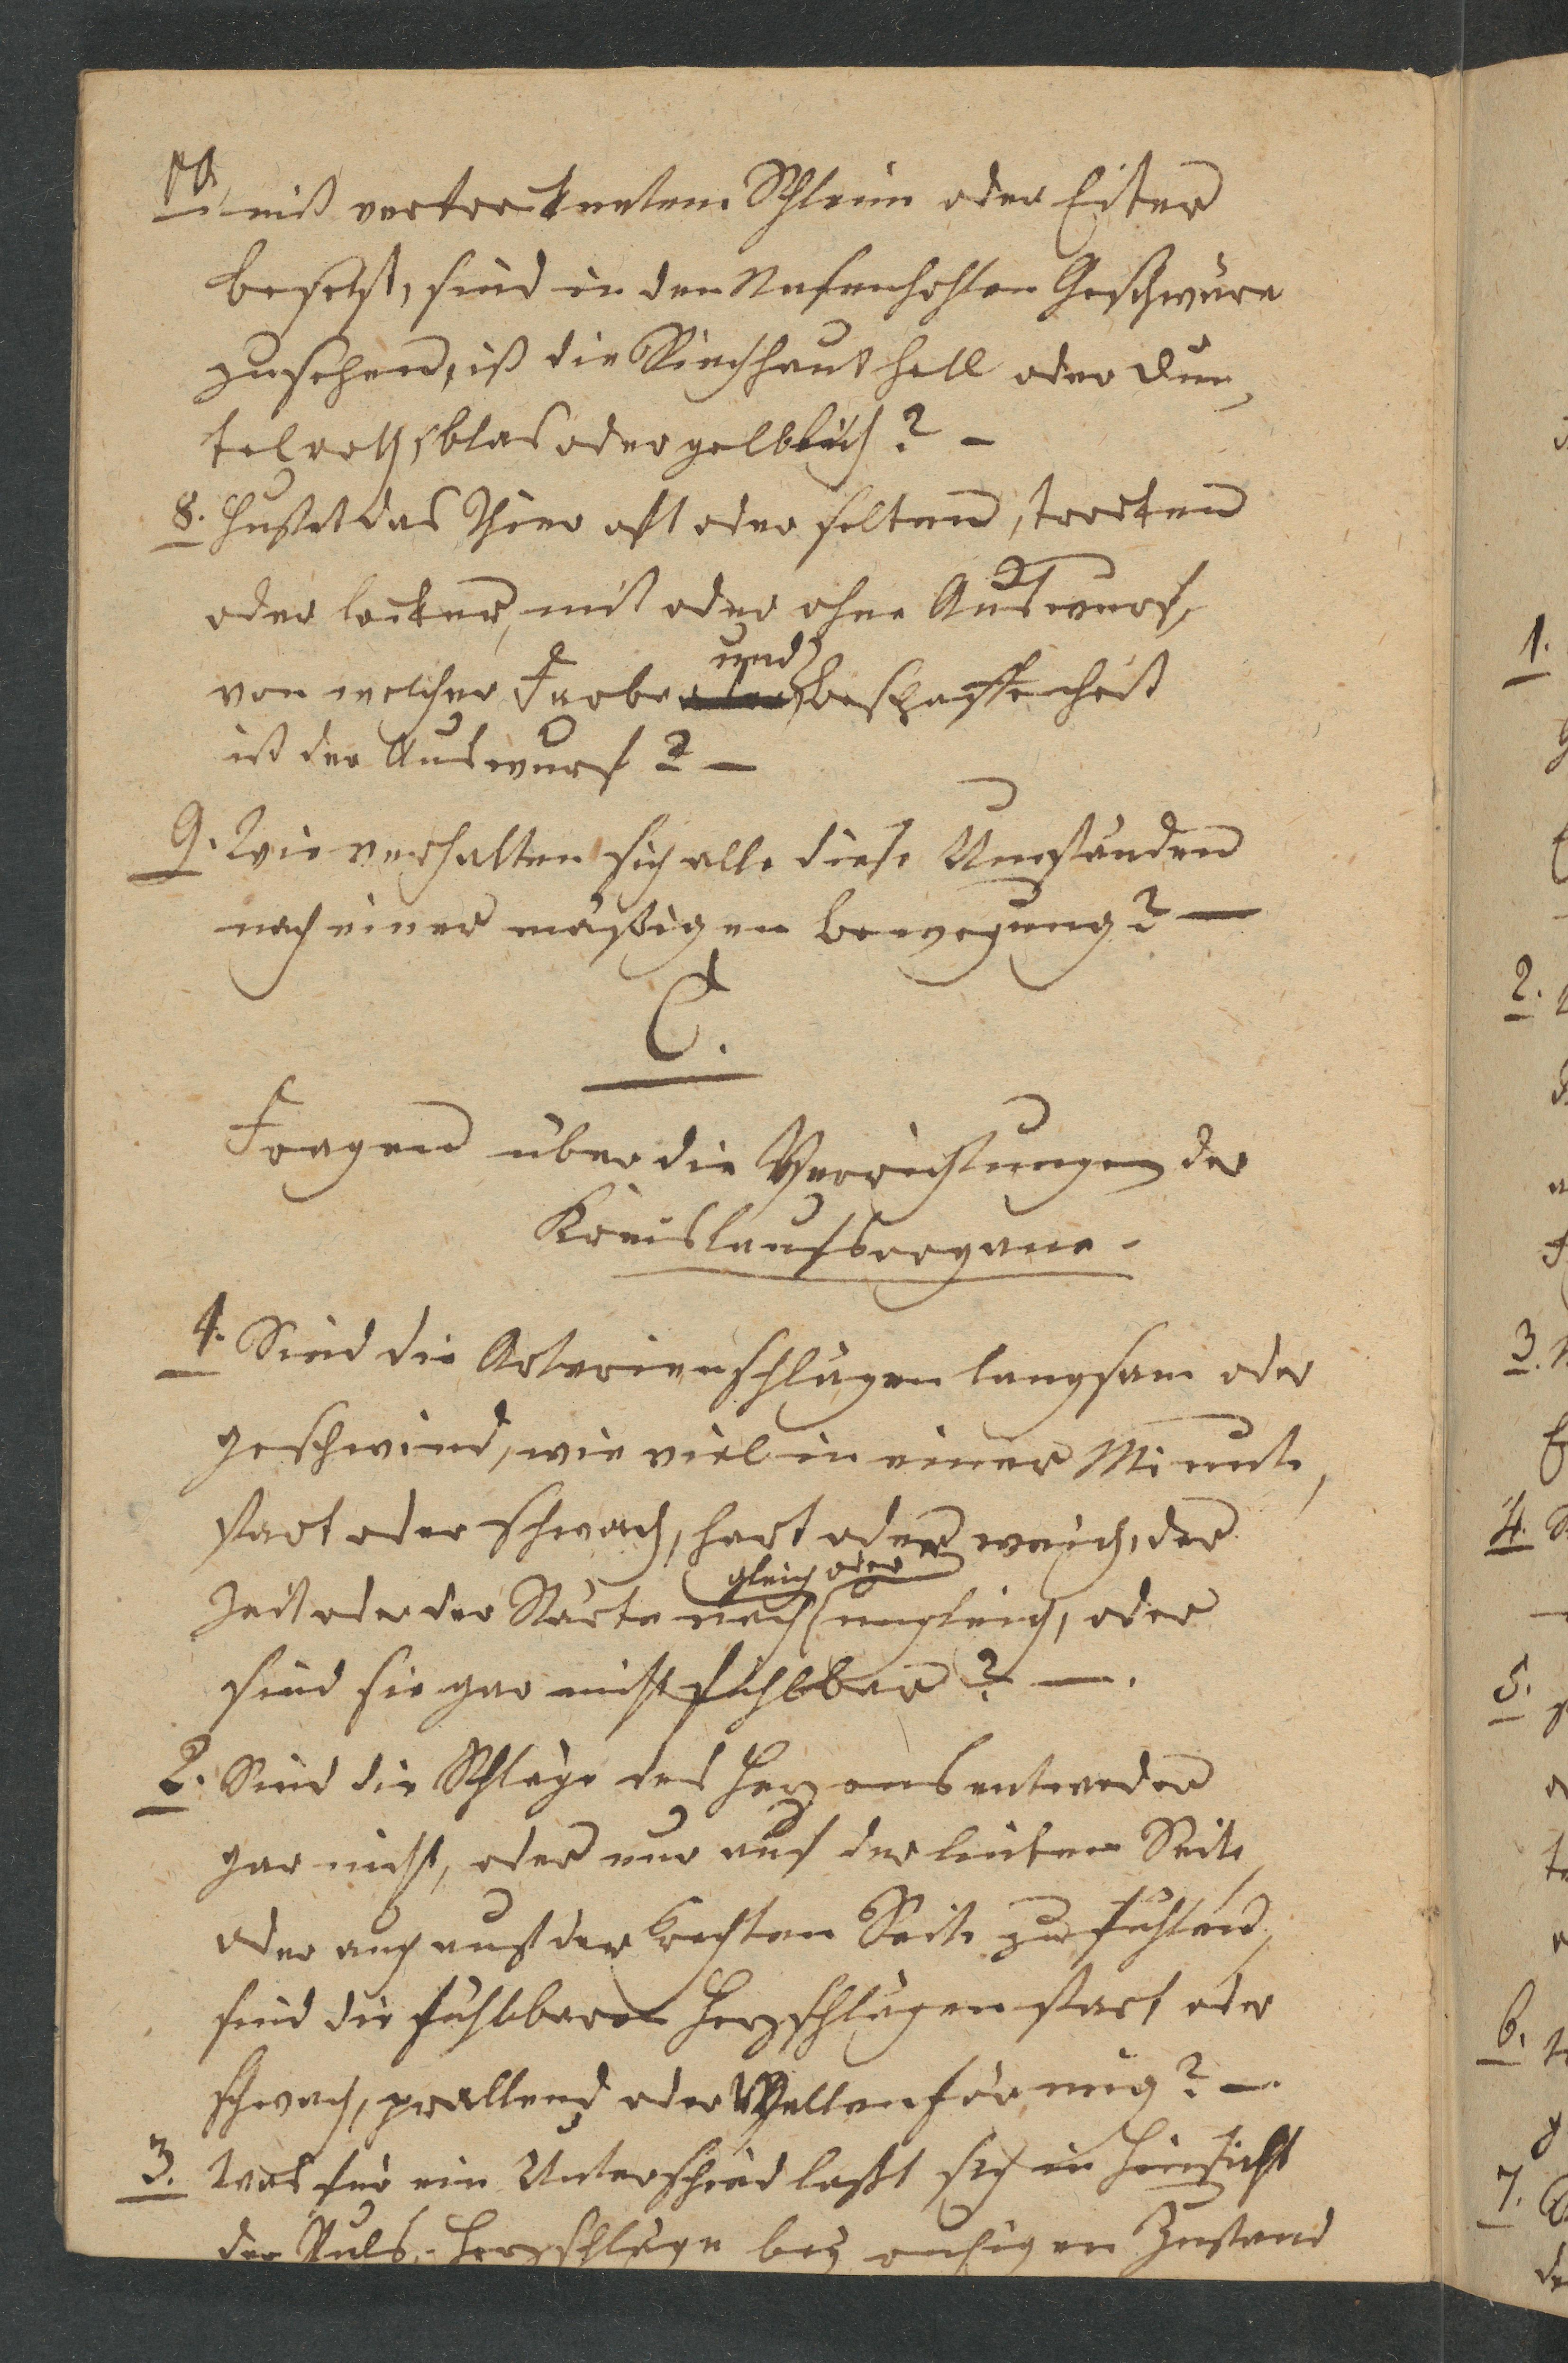 mit vertrocknetem Schleim oder Eiter
besetzt, sind in den Nasenhohlen Geschwüre
zusehen, ist die Riechhaut hell oder dun,
kelroth, blas oder gelblich? –
8. Hustet das Thier oft oder selten, trocken
oder locker, mit oder ohne Auswurf,
und
von welcher Farbe oder Beschaffenheit
ist der Auswurf? –
9. Wie verhalten sich alle diese Umständen
nach einer mäßigen Bewegung? –
C.
Fragen über die Verrichtungen der
Kreislaufsorgane.
1. Sind die Arterienschlägen langsam oder
geschwind, wie viel in einer Minute,
stark oder schwach, hart oder weich, der
gleich oder
Zeit oder der Stärke nach ungleich, oder
sind sie gar nicht fühlbar? –.
2. Sind die Schläge des Herzens entweder
gar nicht, oder nur auf der linken Seite,
oder auch auf der rechten Seite zu fühlen,
sind die fühlbaren Herzschlägen stark oder
schwach, prallend oder Wellenförmig? –.
3. Was für ein Unterschied laßt sich in Hinsicht
der Puls,- Herzschläge bey ruhigen Zustand
1.
2.
3.
4.
5.
6.
7.